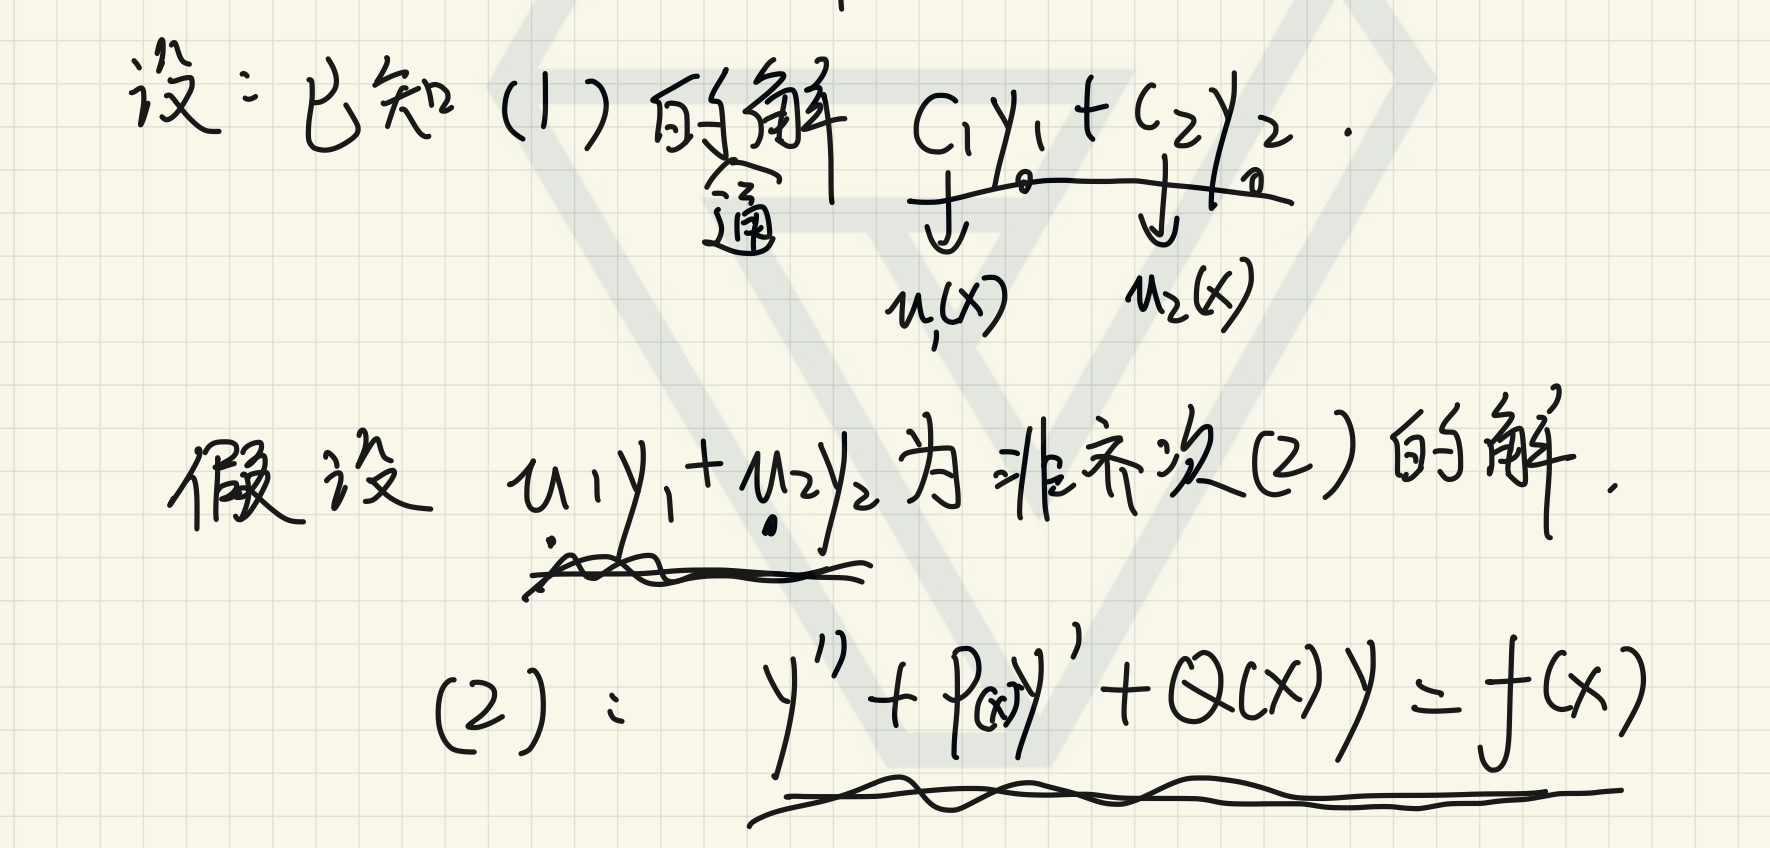 设：已知 (1) 的解 C₁y₁ + C₂y₂ .
通
u₁(x) u₂(x)
假设 u₁y₁ + u₂y₂ 为非齐次(2)的解.
(2)： y'' + P(x)y' + Q(x)y = f(x)